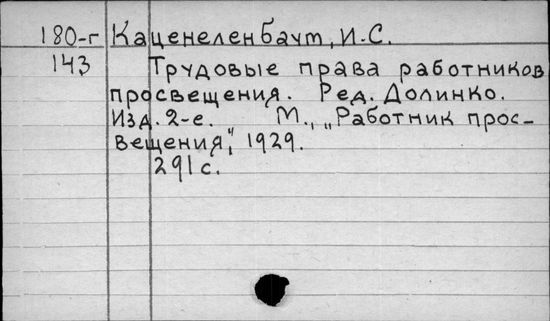 180-г Каценеленбачт, И.-С.
143 Трудовые права работников
просвещения. Ред. Долинко.
Изд. 2-е. М., „Работник прос-
вещения", 1929.
291 с.